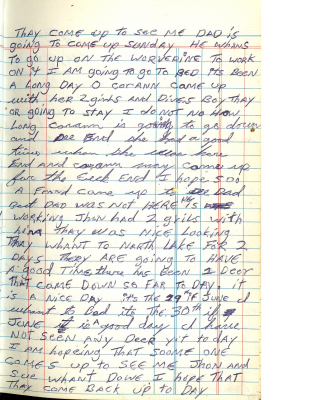 THAY COME UP TO SEE ME DAD IS
going TO COME UP SUNDAY HE WHANS
TO go UP ON THE WOLVERINE TO WORK
ON IT I AM going TO go TO BED ITS BEEN
A LONG DAY O CORANN CAME UP
with her 2 girls AND DIVES BOY THAY
OR going TO STAY I DO NOT NO HOW
LONG corann is going to go down
END she had a good
time when she
END AND corann may come up
for the Week END I hope SOO
A FRIND came up to Dad
But DAD WAS NOT HERE is
WORKING JHON had 2 girls with
him THAY WAS NICE LOOKING
THAY WHANT TO NORTH LAKE FOR 2
DAYS THERE ARE going TO HAVE
A good TIME there has BEEN 1 DEER
THAT COME DOWN SO FAR TO DAY. it
IS A NICE DAY its the 29th of June I
whant to Dad its the 30th if
JUNE it is a good day I have
NOT SEEN ANY DEER yit to day
I AM hopeing THAT SOOME ONE
COMES UP TO SEE ME JHON AND
Sue whANT DOWE I hope THAT
THEY COME BACK UP TO DAY